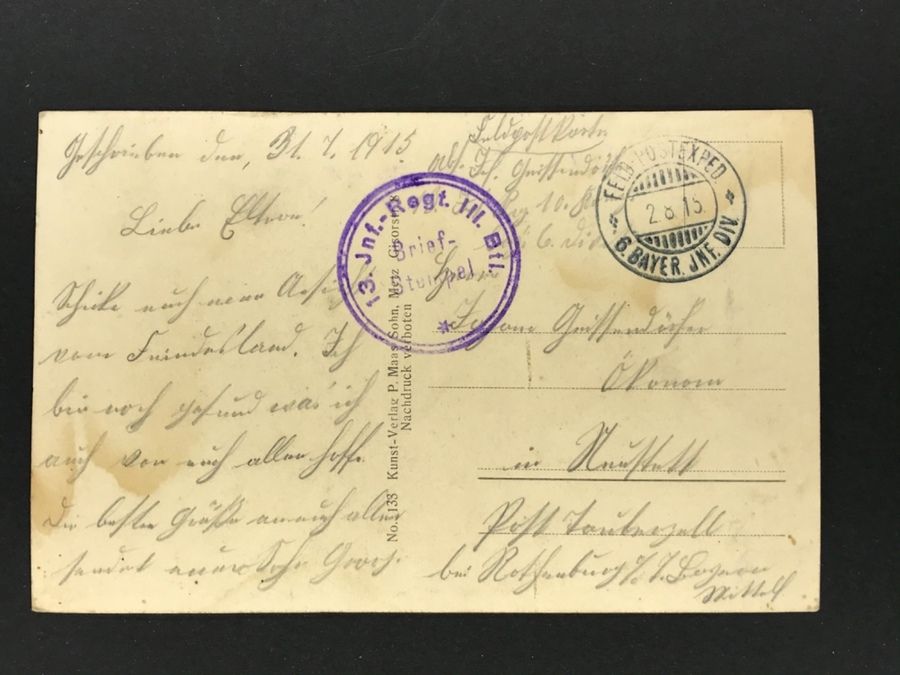 Geschrieben den, 31. 7. 1915.
Liebe Eltern!
Schicke euch eine Ansicht
vom Feindesland. Ich
bin noch gesund was ich
auch von euch allen hoffe.
Die besten Grüße an euch alle
sendet euer Sohn Georg.
13. Jnf.-Regt. III. Btl.
Brief-
stempel
No. 133 Kunst-Verlag P. Maas Sohn, Metz
Nachdruck verboten
Feldpostkarte
Abs. Geissendörfer
10.
6. Di
FELD-POSTEXPED.
2.8.15.
6. BAYER. JNF. DIV.
Herrn
Geissendörfer
Ökonom
in Neustett
Post Tauberzell
bei Rothenburg o/T. Bayern
Mittelf